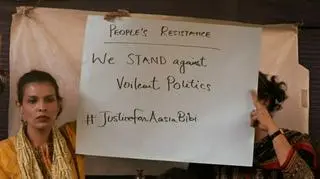 PEOPLE'S RESISTANCE
WE STAND against
Voilent Politics
#JusticeforAasiaBibi